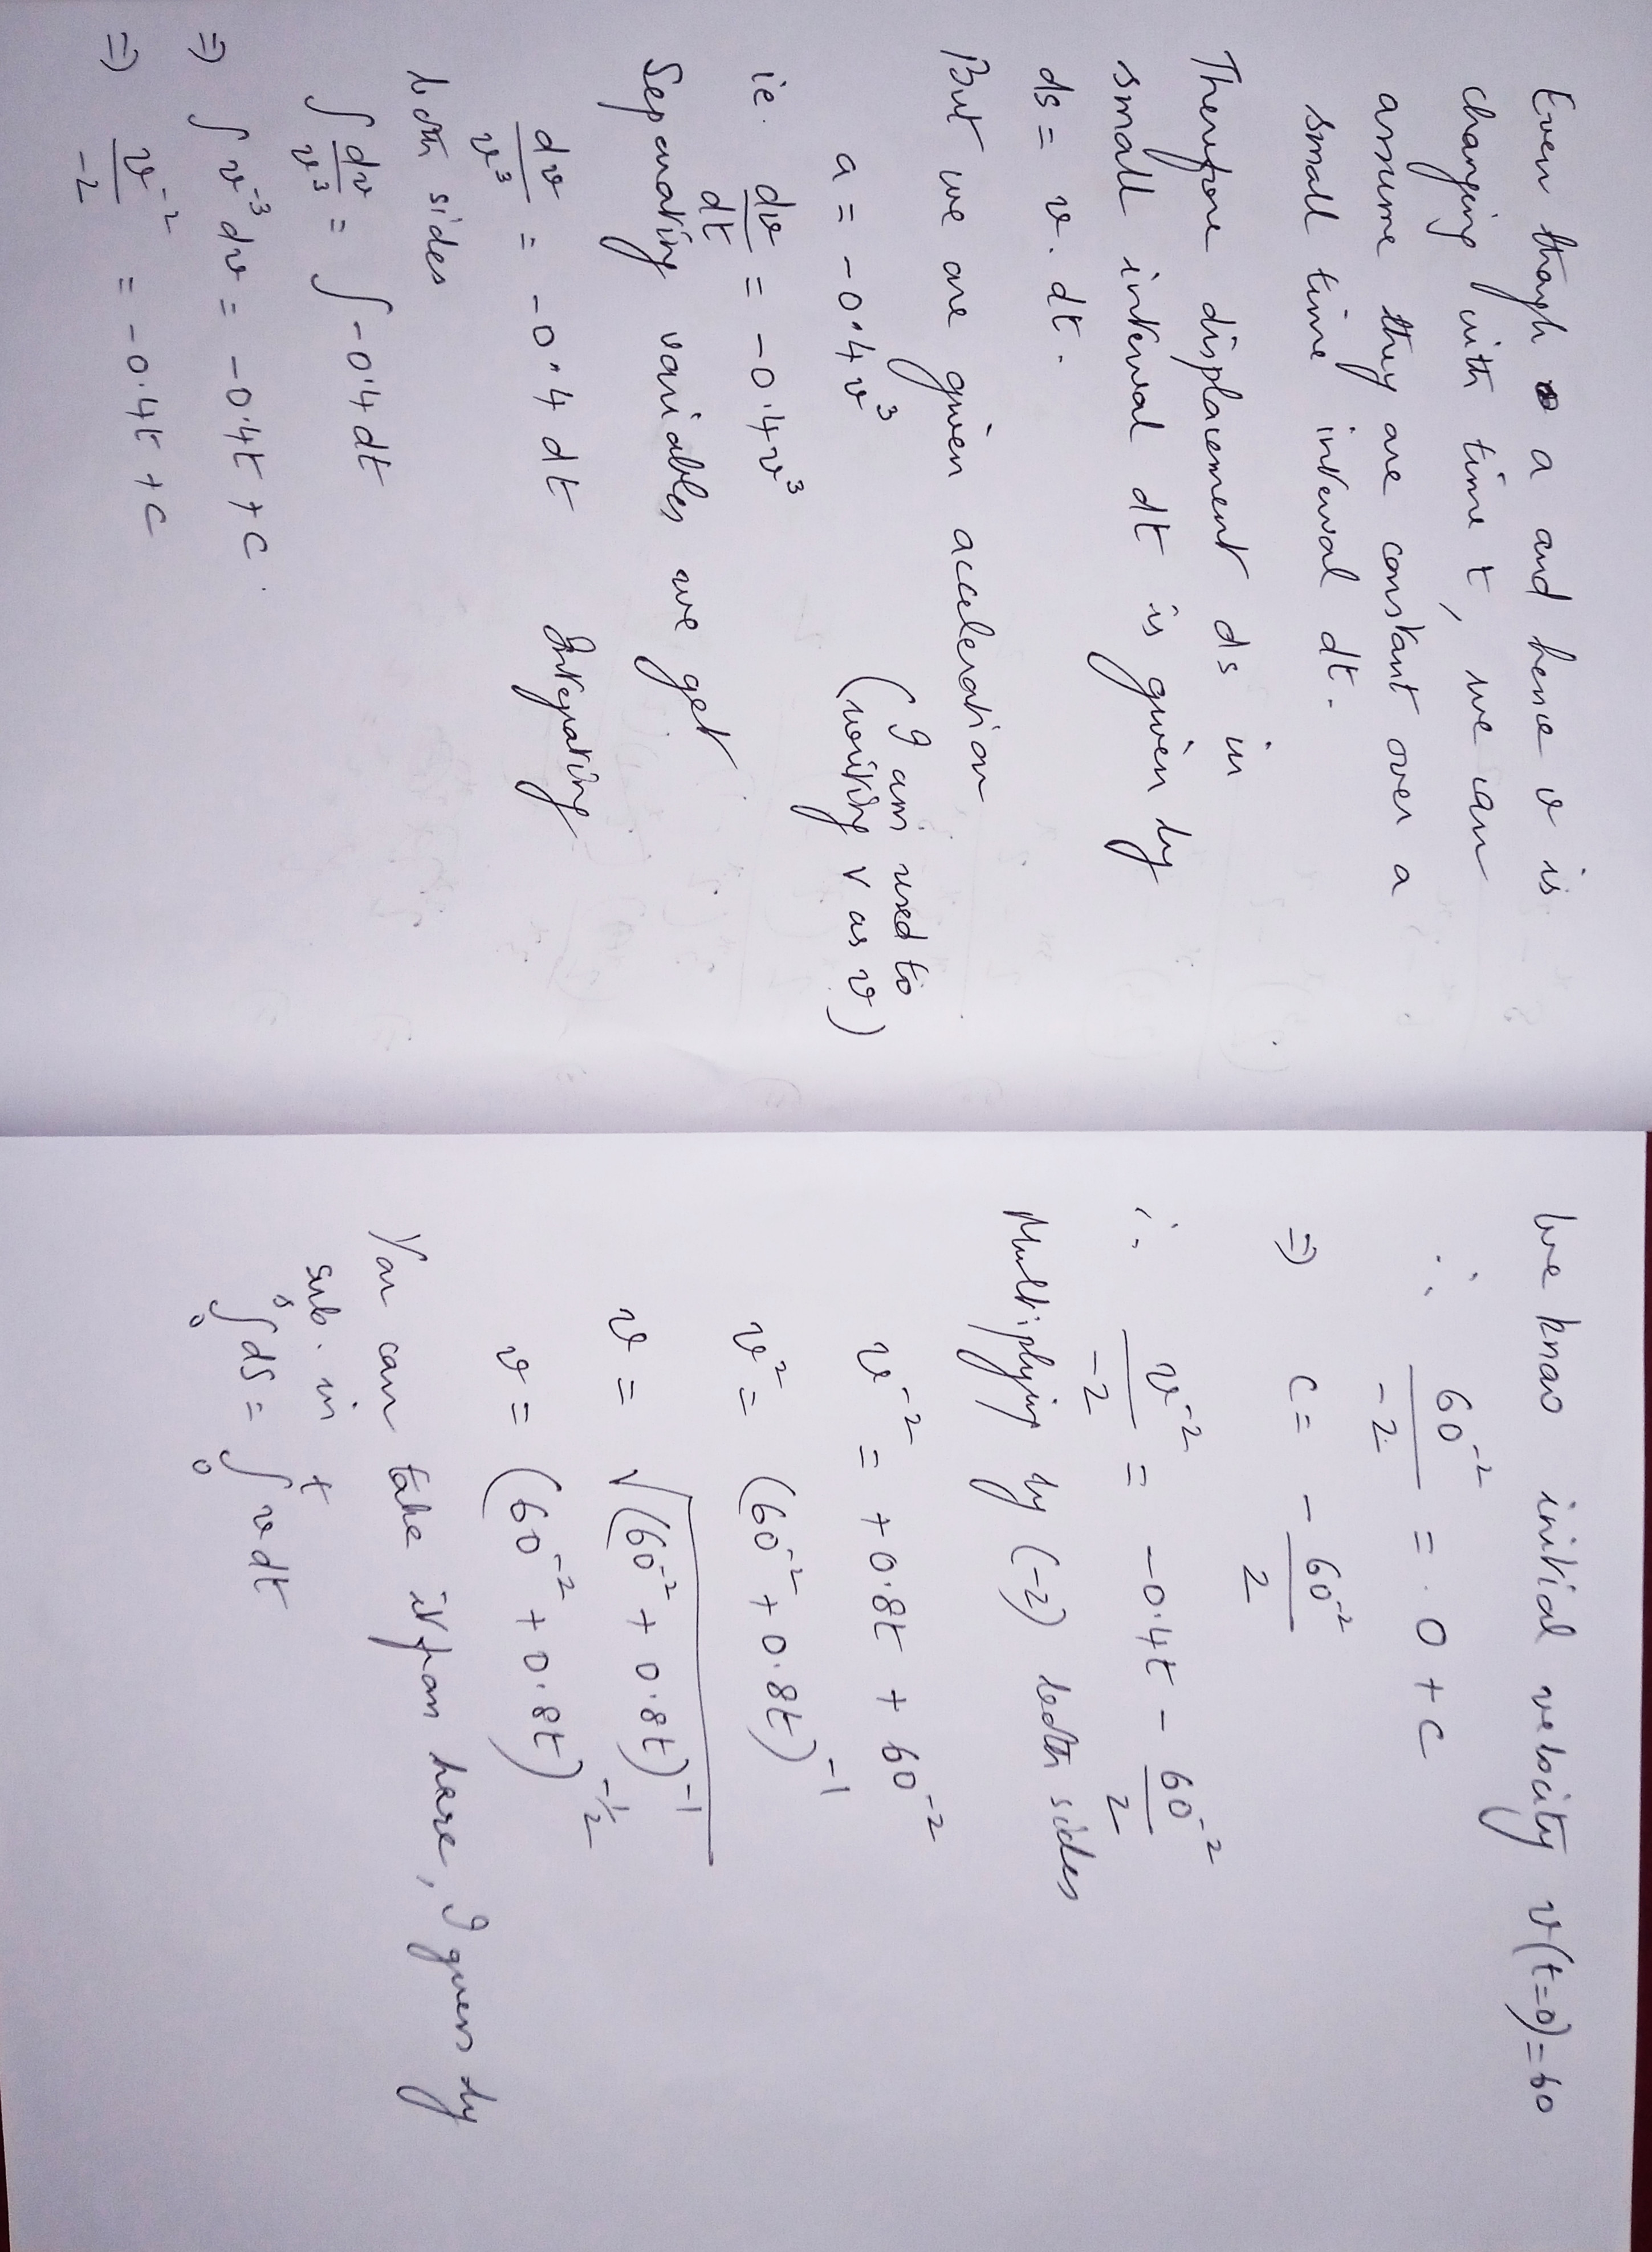 Even though a and hence v is
changing with time t, we can
assume they are constant over a
small time interval dt.
Therefore displacement ds in
small interval dt is given by
ds = v. dt.
But we are given acceleration
a = -0.4v³ (I am used to
writing v as v)
ie. dv/dt = -0.4v³
Separating variables we get
dv/v³ = -0.4 dt Integrating
both sides
∫ dv/v³ = ∫ -0.4 dt
⇒ ∫ v⁻³ dv = -0.4t + c.
⇒ v⁻²/-2 = -0.4t + c
We know initial velocity v(t=0)=60
∴ 60⁻²/-2 = 0 + c
⇒ c = - 60⁻²/2
∴ v⁻²/-2 = -0.4t - 60⁻²/2
Multiplying by (-2) both sides
v⁻² = +0.8t + 60⁻²
v² = (60⁻² + 0.8t)⁻¹
v = √(60⁻² + 0.8t)⁻¹
v = (60⁻² + 0.8t)^-1/2
You can take it from here, I guess by
sub. in
∫₀ˢ ds = ∫₀ᵗ v dt